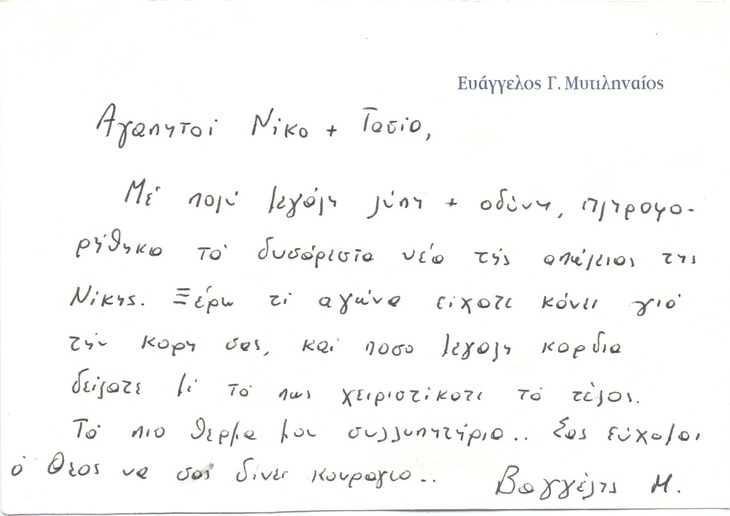 Ευάγγελος Γ. Μυτιληναίος
Αγαπητοί Νίκο + Τασία,
Μέ πολύ μεγάλη λύπη + οδύνη, πληροφο-
ρήθηκα τά δυσάρεστα νέα τής απώλειας της
Νίκης. Ξέρω τί αγώνα είχατε κάνει γιά
τήν κορη σας, καί ποσο μεγαλη καρδια
δείξατε μέ τό πως χειριστίκατε τό τέλος.
Τά πιο θερμα μου συλλυπητήρια.. Σας εύχομαι
ό Θεος να σας δίνει κουραγιο.. Βαγγέλης Μ.